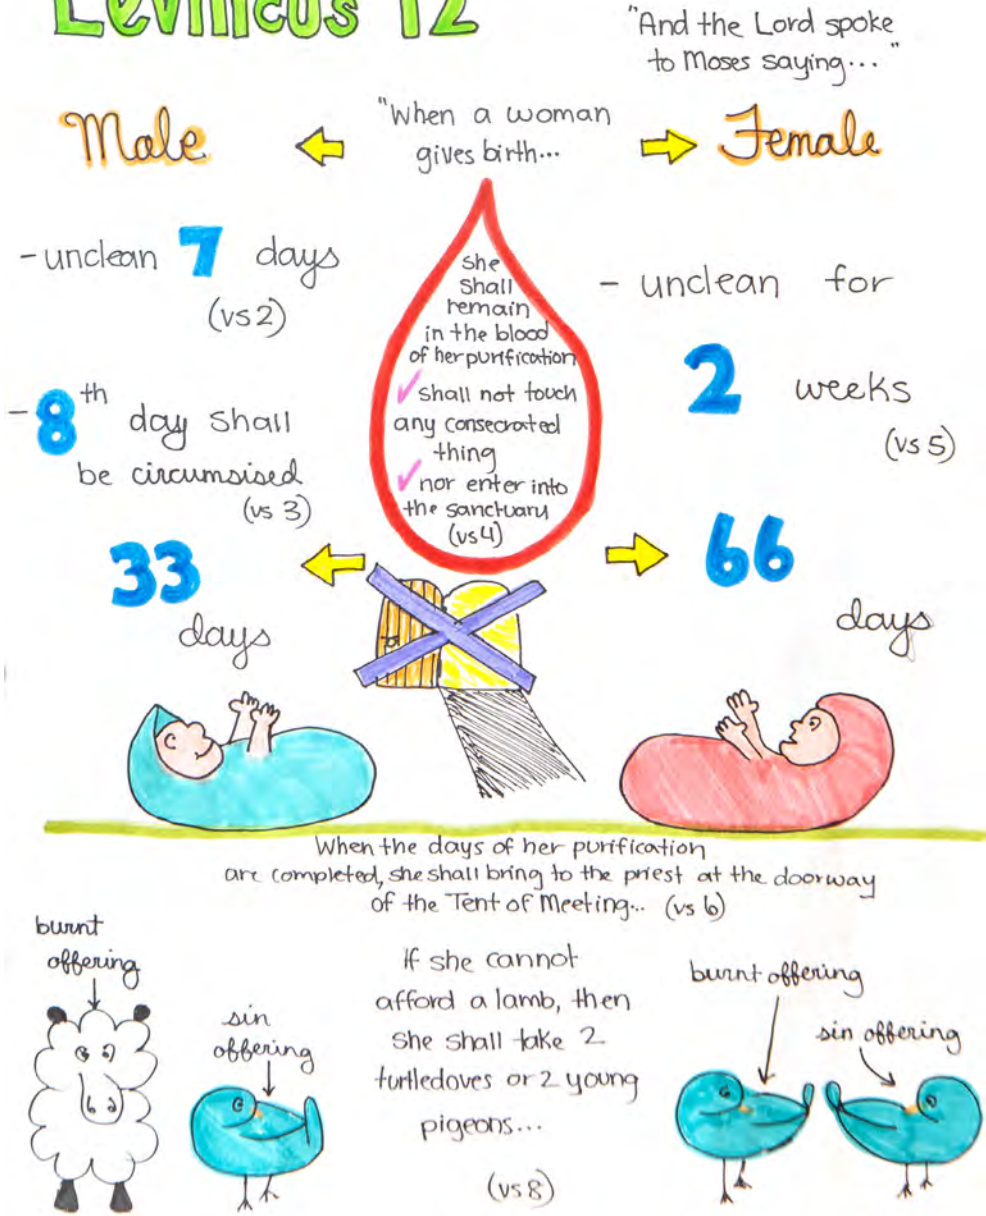 Leviticus 12
"And the Lord spoke
to Moses saying... "
Male
"When a woman
gives birth...
Female
-unclean 7 days
(vs2)
-8th
day shall
be circumsised
(vs 3)
33
days
she
shall
remain
in the blood
of her purification
✓ shall not touch
any consecrated
thing
✓ nor enter into
the sanctuary
(vs4)
- unclean for
2 weeks
(vs 5)
66
days
When the days of her purification
are completed, she shall bring to the priest at the doorway
of the Tent of Meeting... (vs 6)
burnt
offering
sin
offering
If she cannot
afford a lamb, then
she shall take 2
turtledoves or 2 young
pigeons...
(vs 8)
burnt offering
sin offering